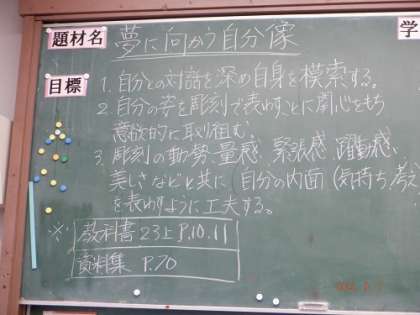 題材名 夢に向かう自分像
学
目標
1. 自分との対話を深め自身を模索する。
2. 自分の姿を彫刻で表わすことに関心をもち
意欲的に取り組む。
3. 彫刻の動勢、量感、緊張感、躍動感、
美しさなどと共に 自分の内面(気持ち、考え
を表わすように工夫する。
※ 教科書 2・3上 P.10.11
資料集 P.70